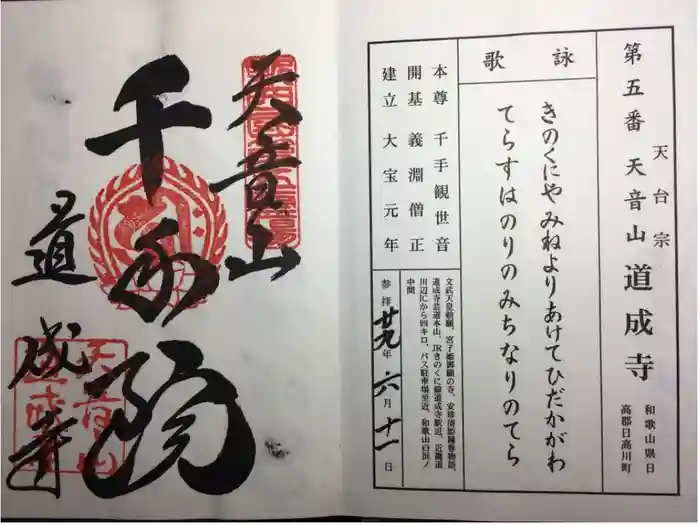 第五番 天音山 道成寺
天台宗
和歌山県日
高郡日高川町
詠歌
きのくにや みねよりあけてひだかがわ
てらすはのりのみちなりのてら
本尊 千手観世音
開基 義淵僧正
建立 大宝元年
文武天皇勅願、宮子姫御願の寺、安珍清姫縁巻物語、
道成寺芸道本山、JRきのくに線道成寺駅近、近畿道
川辺ICから四キロ、バス駐車場至近、和歌山白浜ノ
中間
参拝 廿九年 六月十一日
天音山
千手院
道成寺